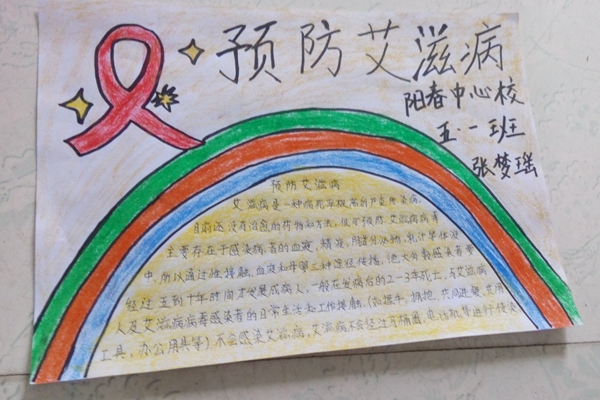 预防艾滋病
阳春中心校
五·一班
张梦瑶
预防艾滋病
艾滋病是一种病死率极高的严重传染病,
目前还没有治愈的药物和方法,但可预防.艾滋病病毒
主要存在于感染病者的血液、精液、阴道分泌物、乳汁等体液
中,所以通过性接触,血液和母婴三种途径传播.绝大多数感染者要
经过五到十年时间才发展成病人,一般在发病后的2-3年死亡.与艾滋病
人及艾滋病病毒感染者的日常生活和工作接触.(如握手,拥抱,共同进餐,共用
工具,办公用具等)不会感染艾滋病,艾滋病不会经过马桶圈,电话机等进行传染